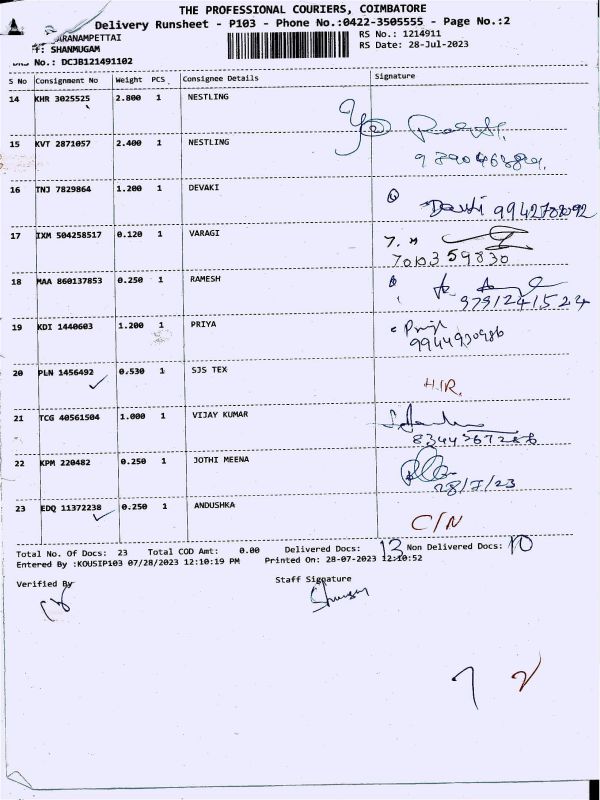 THE PROFESSIONAL COURIERS, COIMBATORE
Delivery Runsheet - P103 - Phone No.:0422-3505555 - Page No.:2
ARANAMPETTAI
RS No.: 1214911
: SHANMUGAM
RS Date: 28-Jul-2023
No.: DCJB121491102
S No Consignment No Weight PCS Consignee Details Signature
14 KHR 3025525 2.800 1 NESTLING
15 KVT 2871057 2.400 1 NESTLING
16 TNJ 7829864 1.200 1 DEVAKI
17 IXM 504258517 0.120 1 VARAGI
7013359830
18 MAA 860137853 0.250 1 RAMESH
9791241524
19 KDI 1440603 1.200 1 PRIYA
9944930986
20 PLN 1456492 0.530 1 SJS TEX
21 TCG 40561504 1.000 1 VIJAY KUMAR
22 KPM 220482 0.250 1 JOTHI MEENA
28/7/23
23 EDQ 11372238 0.250 1 ANDUSHKA
C/N
Total No. Of Docs: 23 Total COD Amt: 0.00 Delivered Docs: 13 Non Delivered Docs: 10
Entered By :KOUSIP103 07/28/2023 12:10:19 PM Printed On: 28-07-2023 12:10:52
Verified By Staff Signature